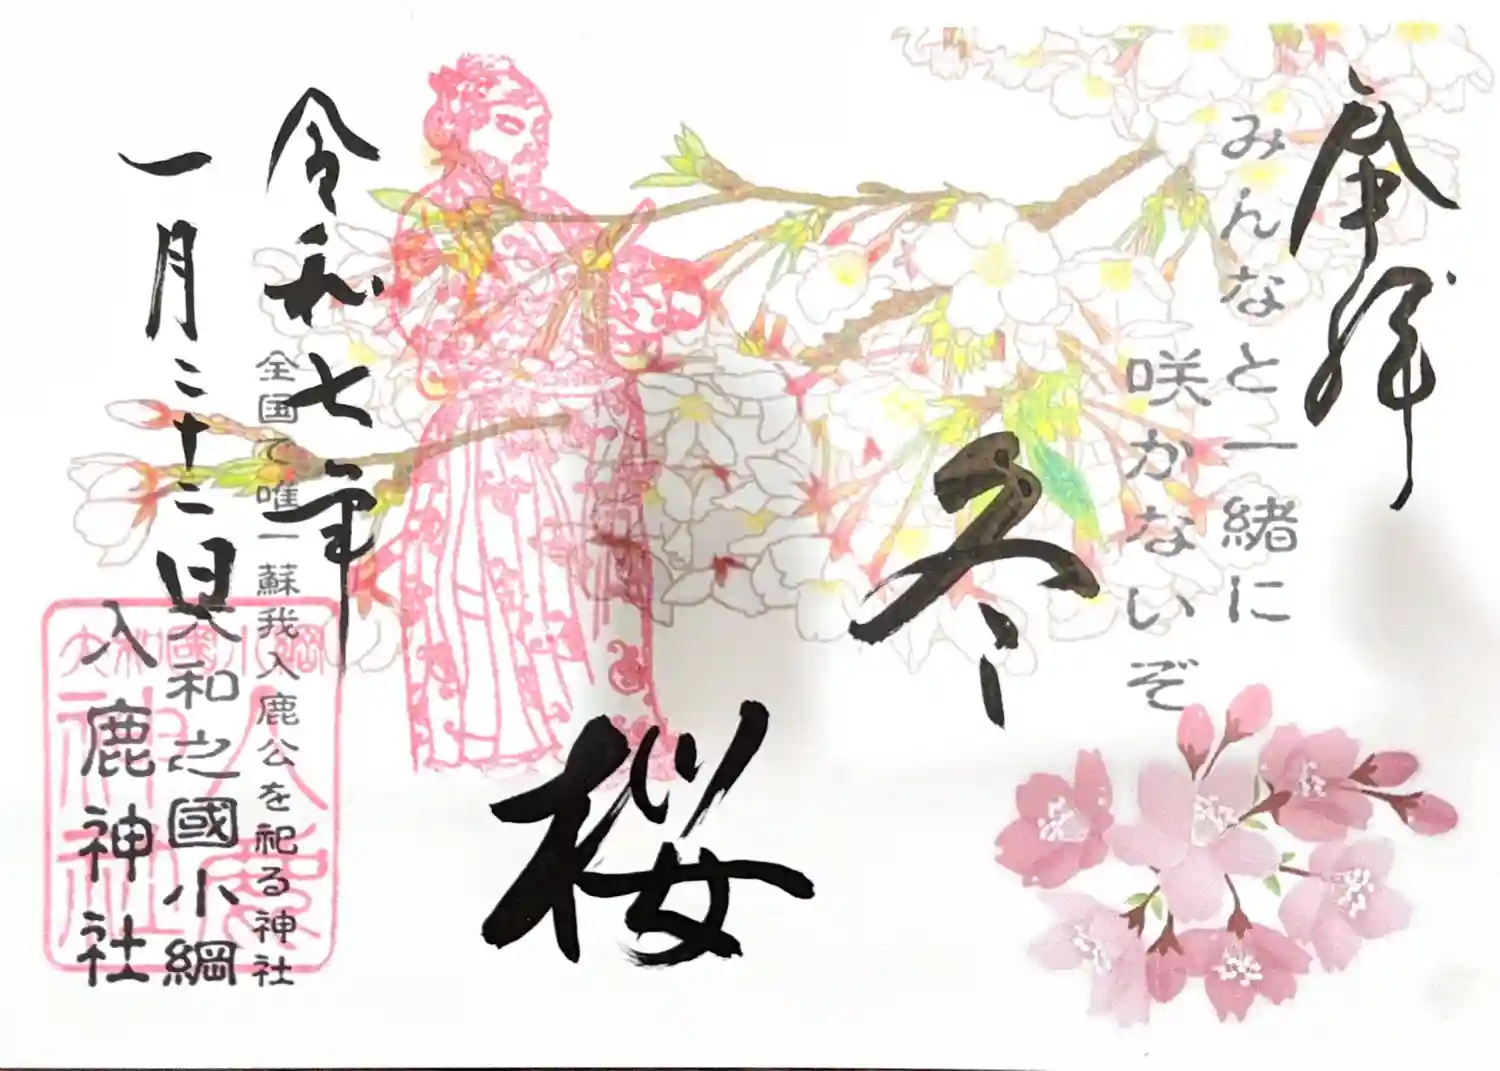 奉拝
みんなと一緒に
咲かないぞ
冬
桜
令和七年
一月二十二日
全国で唯一蘇我入鹿公を祀る神社
大和之國小綱
入鹿神社
大和國小綱
入鹿
神社